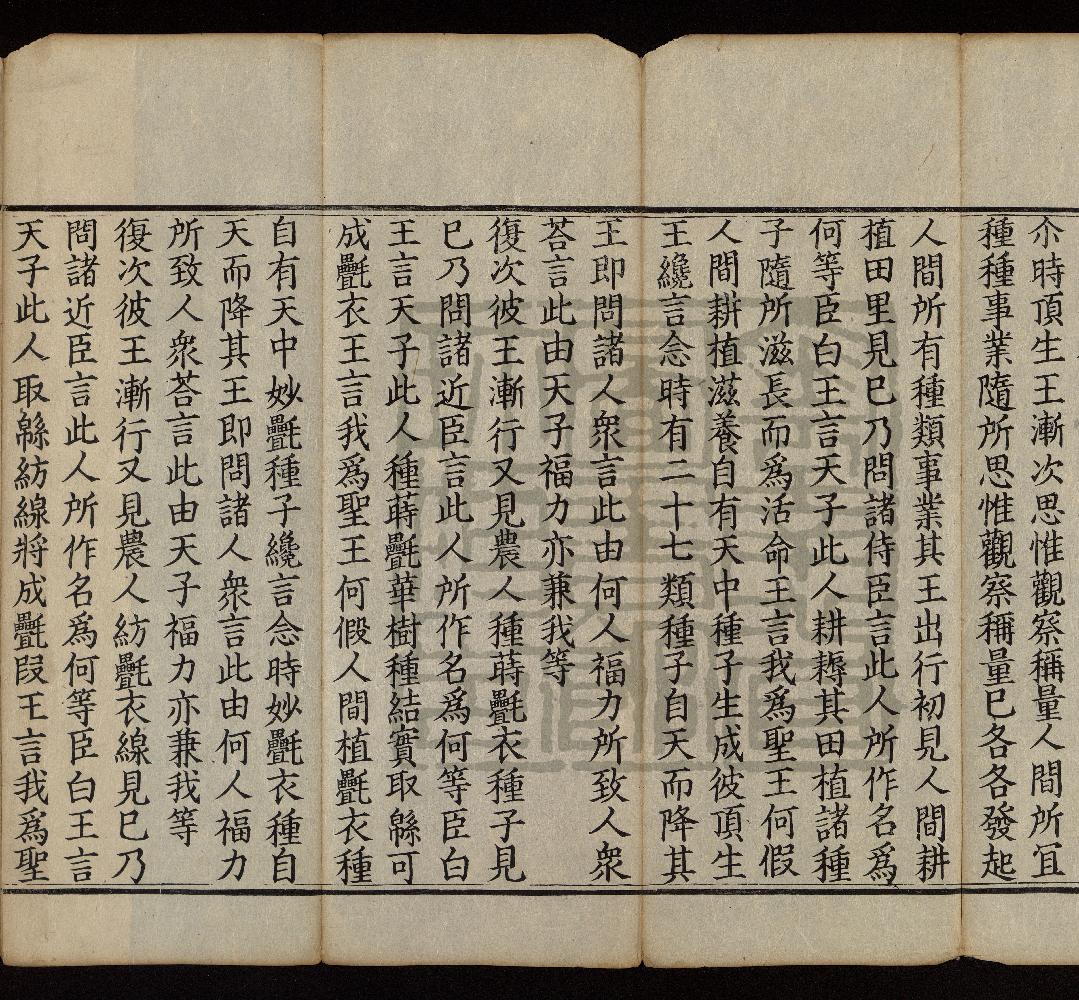 尒時頂生王漸次思惟觀察稱量人間所冝
種種事業隨所思惟觀察稱量已各各發起
人間所有種類事業其王出行初見人間耕
植田里見已乃問諸侍臣言此人所作名爲
何等臣白王言天子此人耕耨其田植諸種
子隨所滋長而爲活命王言我爲聖王何假
人間耕植滋養自有天中種子生成彼頂生
王纔言念時有二十七類種子自天而降其
王即問諸人衆言此由何人福力所致人衆
荅言此由天子福力亦兼我等
復次彼王漸行又見農人種蒔㲲衣種子見
已乃問諸近臣言此人所作名爲何等臣白
王言天子此人種蒔㲲華樹種結實取緜可
成㲲衣王言我爲聖王何假人間植㲲衣種
自有天中妙㲲種子纔言念時妙㲲衣種自
天而降其王即問諸人衆言此由何人福力
所致人衆荅言此由天子福力亦兼我等
復次彼王漸行又見農人紡㲲衣線見已乃
問諸近臣言此人所作名爲何等臣白王言
天子此人取緜紡線將成㲲段王言我爲聖